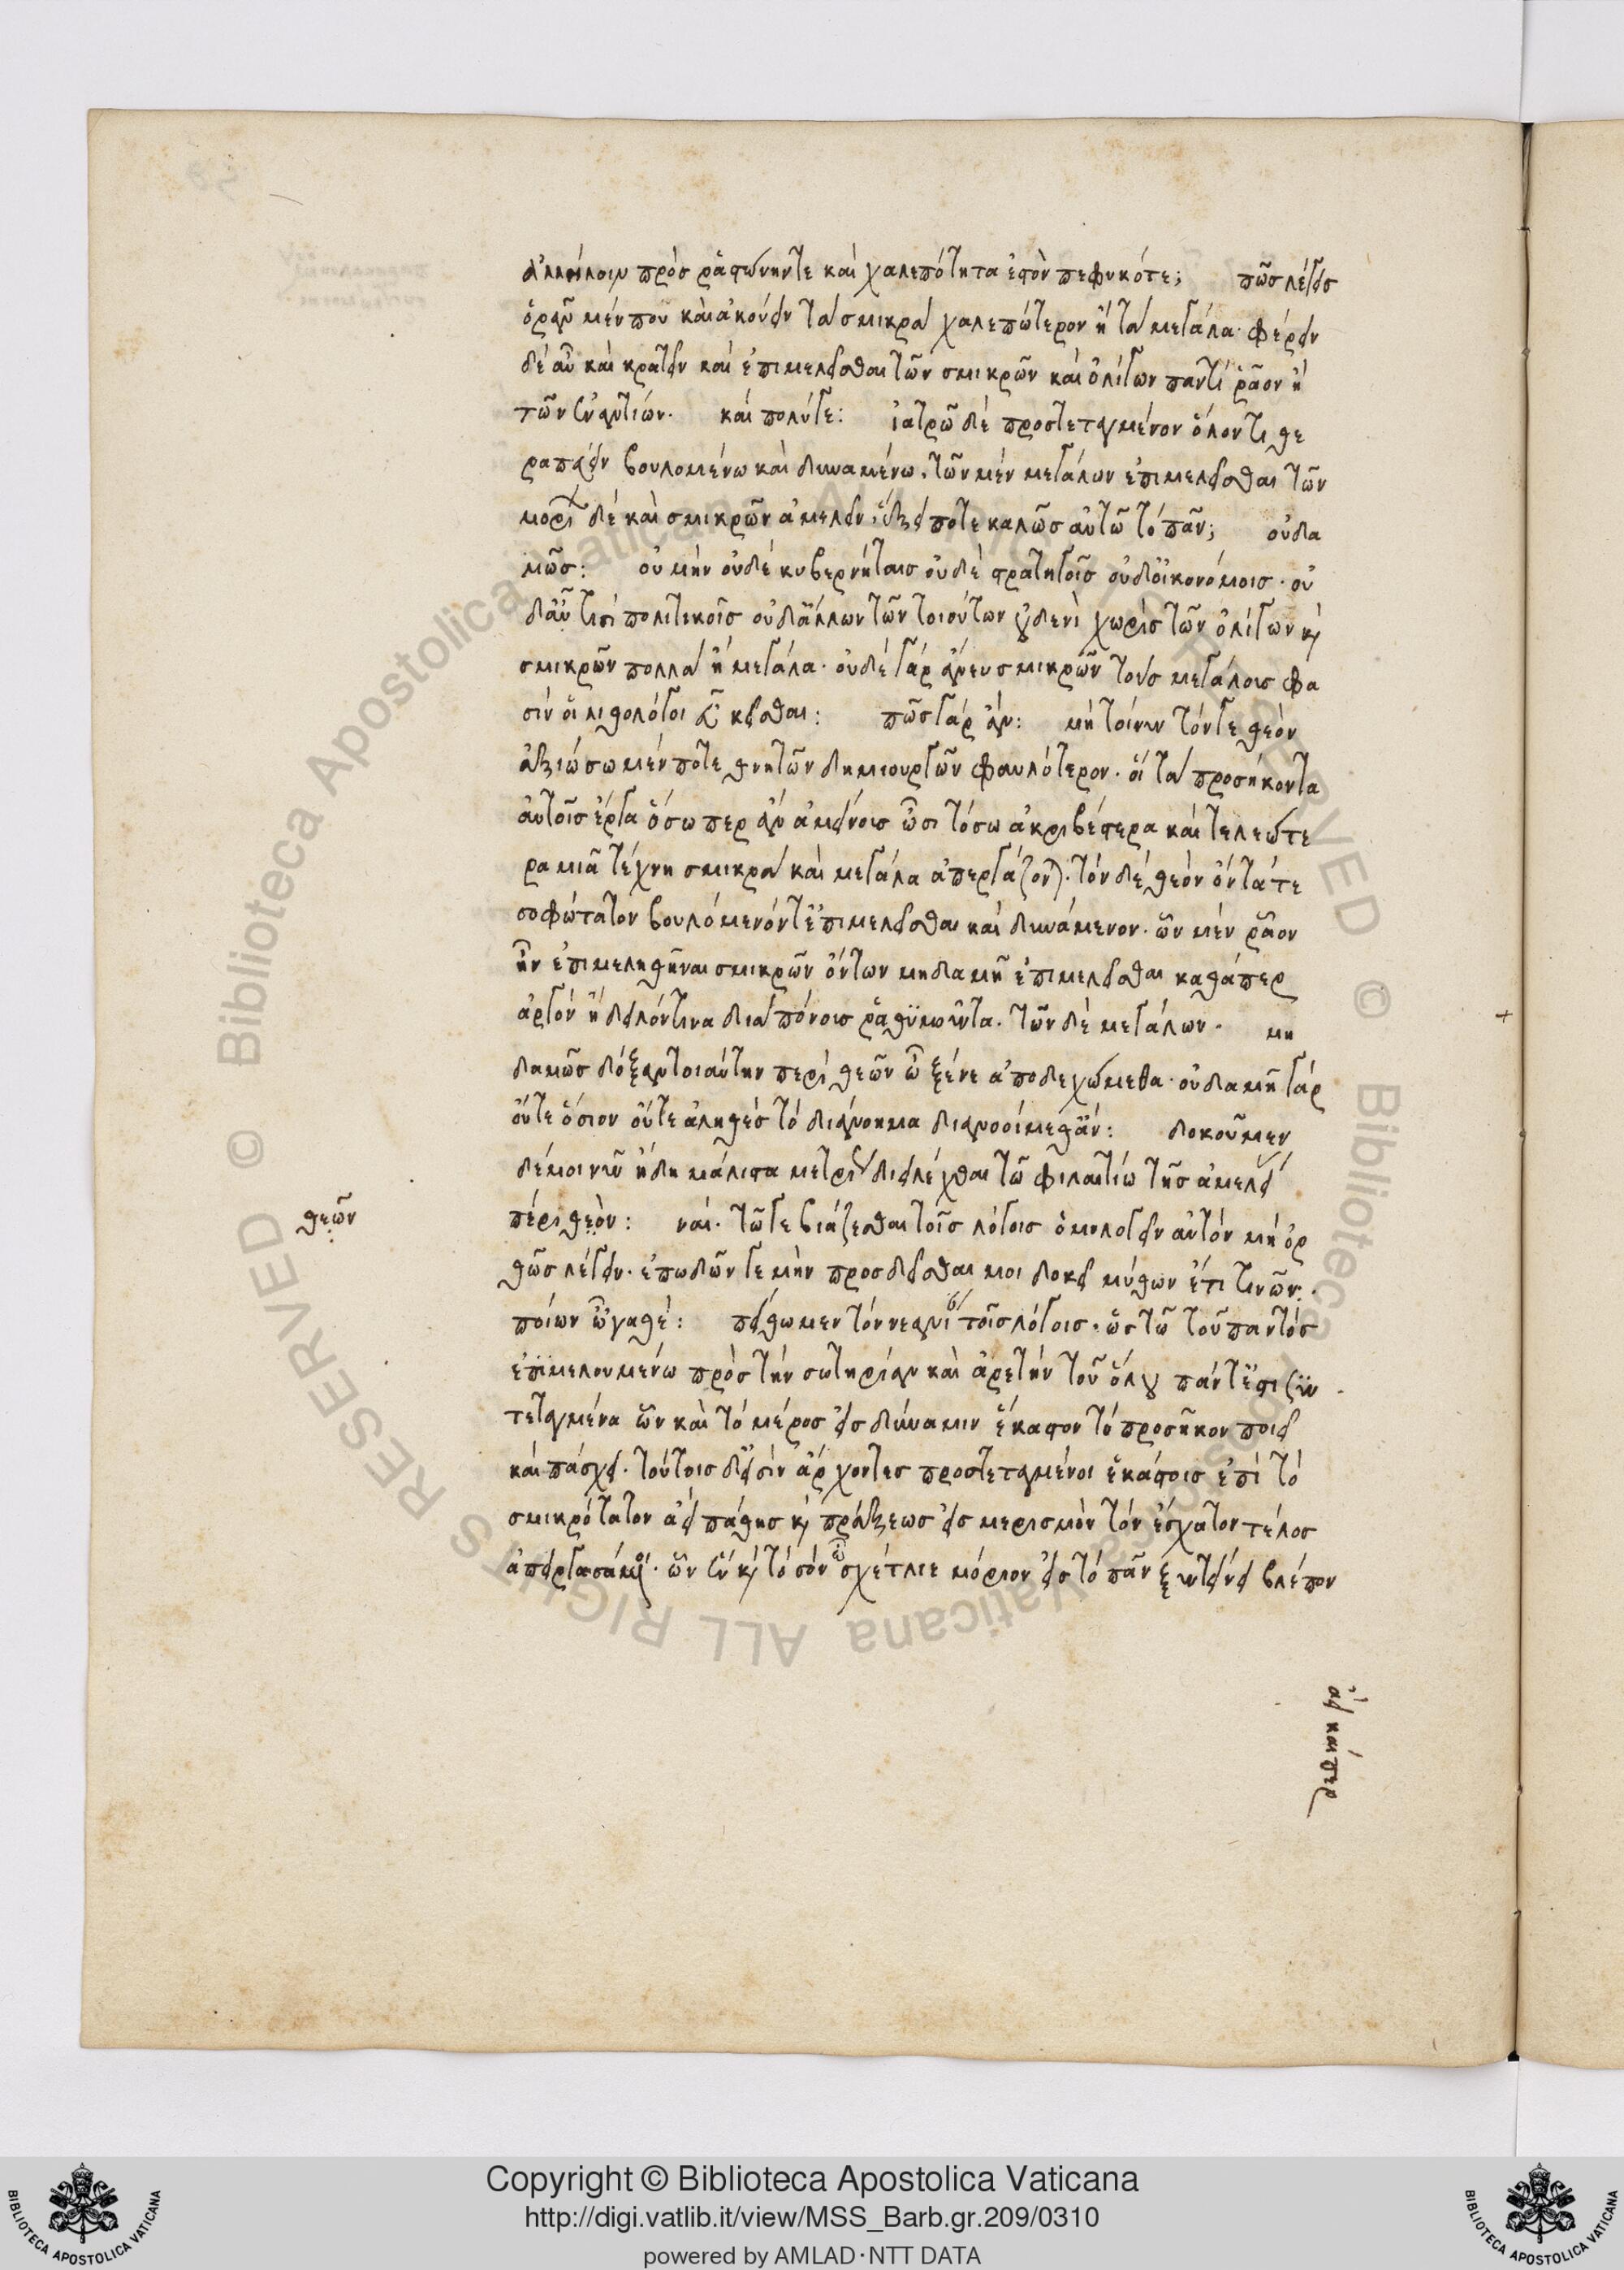 ἀλλήλοιν πρὸσ ῥαστώνηντε καὶ χαλεπότητα ἐστὸν πεφυκότε; πῶσ λέγεισ
ὁρᾶν μέν που καὶ ἀκούειν τὰ σμικρὰ χαλεπώτερον ἢ τὰ μεγάλα· φέρειν
δὲ αὖ καὶ κρατεῖν καὶ ἐπιμελεῖσθαι τῶν σμικρῶν καὶ ὀλίγων παντὶ ῥᾶον ἢ
τῶν ἐναντίων. καὶ πολύ γε: ἰατρῶ δὲ προστεταγμένον ὅλον τι θε
ραπεύειν βουλομένω καὶ δυναμένω. τῶν μὲν μεγάλων ἐπιμελεῖσθαι τῶν
μορίων δὲ καὶ σμικρῶν ἀμελεῖν, ἕξει ποτε καλῶσ αὐτῶ τὸ πᾶν; οὐδα
μῶσ: οὐ μὴν οὐδὲ κυβερνήταισ οὐδὲ στρατηγοῖσ οὐδ οἰκονόμοισ· οὐ
δ αὖ τισὶ πολιτικοῖσ οὐδ ἄλλων τῶν τοιούτων οὐδενὶ χωρὶσ τῶν ὀλίγων καὶ
σμικρῶν πολλὰ ἢ μεγάλα· οὐδὲ γὰρ ἄνευ σμικρῶν τοὺσ μεγάλουσ φα
σὶν οἱ λιθολόγοι εὖ κεῖσθαι: πῶσ γὰρ ἄν: μὴ τοίνυν τόν γε θεὸν
ἀξιώσωμέν ποτε θνητῶν δημιουργῶν φαυλότερον· οἳ τὰ προσήκοντα
αὐτοῖσ ἔργα ὅσω περ ἂν ἀμείνουσ ὦσι τόσω ἀκριβέστερα καὶ τελεώτε
ρα μιᾶ τέχνη σμικρὰ καὶ μεγάλα ἀπεργάζονται. τὸν δὲ θεὸν ὄντα τε
σοφώτατον βουλόμενόν τ ἐπιμελεῖσθαι καὶ δυνάμενον· ὧν μὲν ῥᾶον
ἦν ἐπιμεληθῆναι σμικρῶν ὄντων μηδαμῆ ἐπιμελεῖσθαι καθάπερ
ἀργὸν ἢ δειλόν τινα διὰ πόνουσ ῥαθυμοῦντα. τῶν δὲ μεγάλων· μη
δαμῶσ δόξαν τοιαύτην περὶ θεῶν ὦ ξένε ἀποδεχώμεθα· οὐδαμῆ γὰρ
οὔτε ὅσιον οὔτε ἀληθὲσ τὸ διανόημα διανοοίμεθ ἄν: δοκοῦμεν
δέ μοι νῦν ἤδη μάλιστα μετρίωσ διειλέχθαι τῶ φιλαιτίω τῆσ ἀμελείασ
πέρι θεὸν: ναί. τῶ γε βιάζεσθαι τοῖσ λόγοισ ὁμολογεῖν αὐτὸν μὴ ὀρ
θῶσ λέγειν· ἐπωδῶν γε μὴν προσδεῖσθαι μοι δοκεῖ μύθων ἔτι τινῶν:.
ποίων ὦγαθέ: πείθωμεν τὸν νεανίαν τοῖσ λόγοισ· ὡσ τῶ τοῦ παντὸσ
ἐπιμελουμένω πρὸσ τὴν σωτηρίαν καὶ ἀρετὴν τοῦ ὅλου πάντ ἐστι συν
τεταγμένα ὧν καὶ τὸ μέροσ εἰσ δύναμιν ἕκαστον τὸ προσῆκον ποιεῖ
καὶ πάσχει. τούτοισ δ εἰσὶν ἄρχοντεσ προστεταγμένοι ἑκάστοισ ἐπὶ τὸ
σμικρότατον ἀεὶ πάθησ καὶ πράξεωσ εἰσ μερισμὸν τὸν ἔσχατον τέλοσ
ἀπειργασάμενοι· ὧν ἓν καὶ τὸ σὸν ὦ σχέτλιε μόριον εἰσ τὸ πᾶν ξυντείνει βλέπον
θεῶν
ἀεὶ καίπερ
Copyright © Biblioteca Apostolica Vaticana
http://digi.vatlib.it/view/MSS_Barb.gr.209/0310
powered by AMLAD·NTT DATA
BIBLIOTECA APOSTOLICA VATICANA
BIBLIOTECA APOSTOLICA VATICANA
© Biblioteca Apostolica Vaticana ALL RIGHTS RESERVED